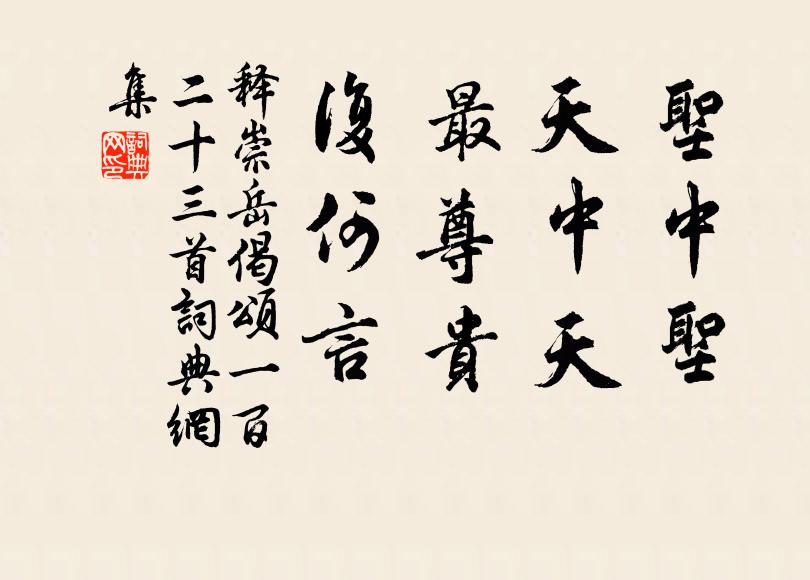 聖中聖
天中天
最尊貴
復何言
释崇岳偈頌一百
二十三首詞典網
集
詞典
网印